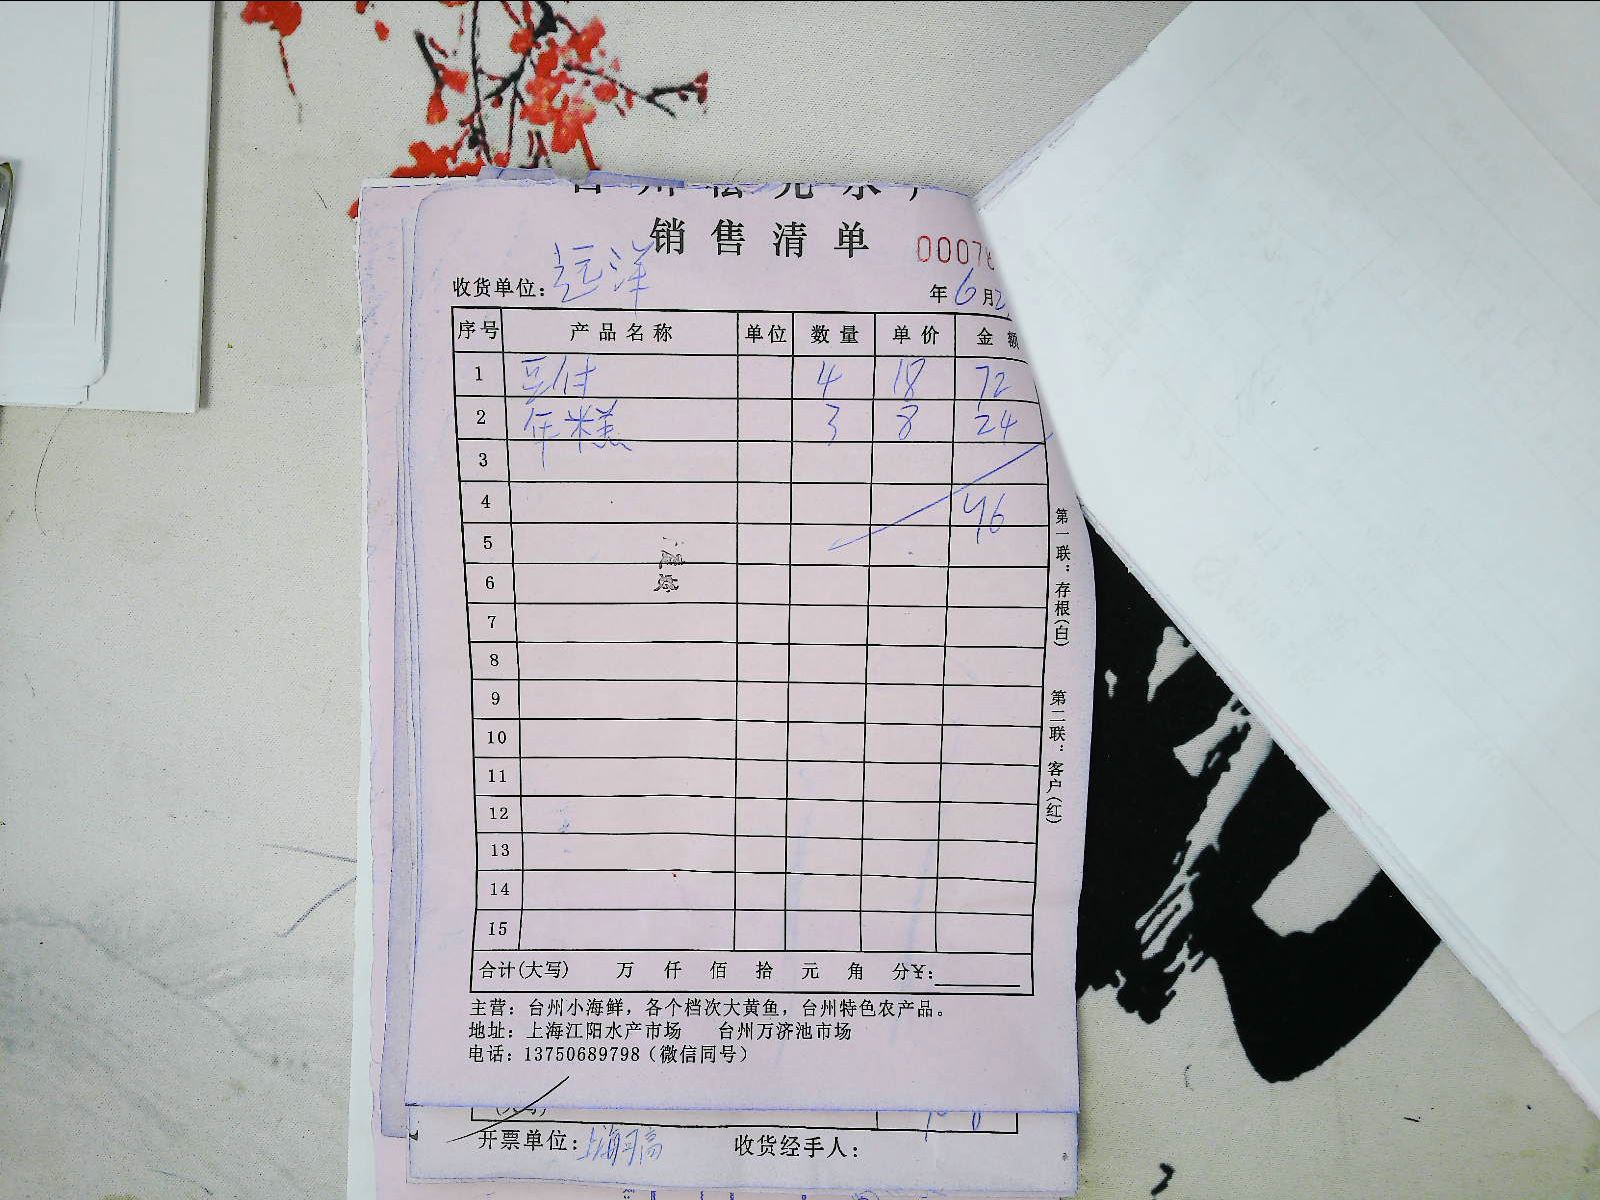 销售清单
00078
收货单位：远洋 年 6 月 2
序号 产品名称 单位 数量 单价 金额
1 豆付 4 18 72
2 年糕 3 8 24
3
4 96
5
6
7
8
9
10
11
12
13
14
15
合计(大写) 万 仟 佰 拾 元 角 分¥:
主营：台州小海鲜，各个档次大黄鱼，台州特色农产品。
地址：上海江阳水产市场 台州万济池市场
电话：13750689798（微信同号）
第一联：存根(白)
第二联：客户(红)
开票单位：上海 收货经手人：